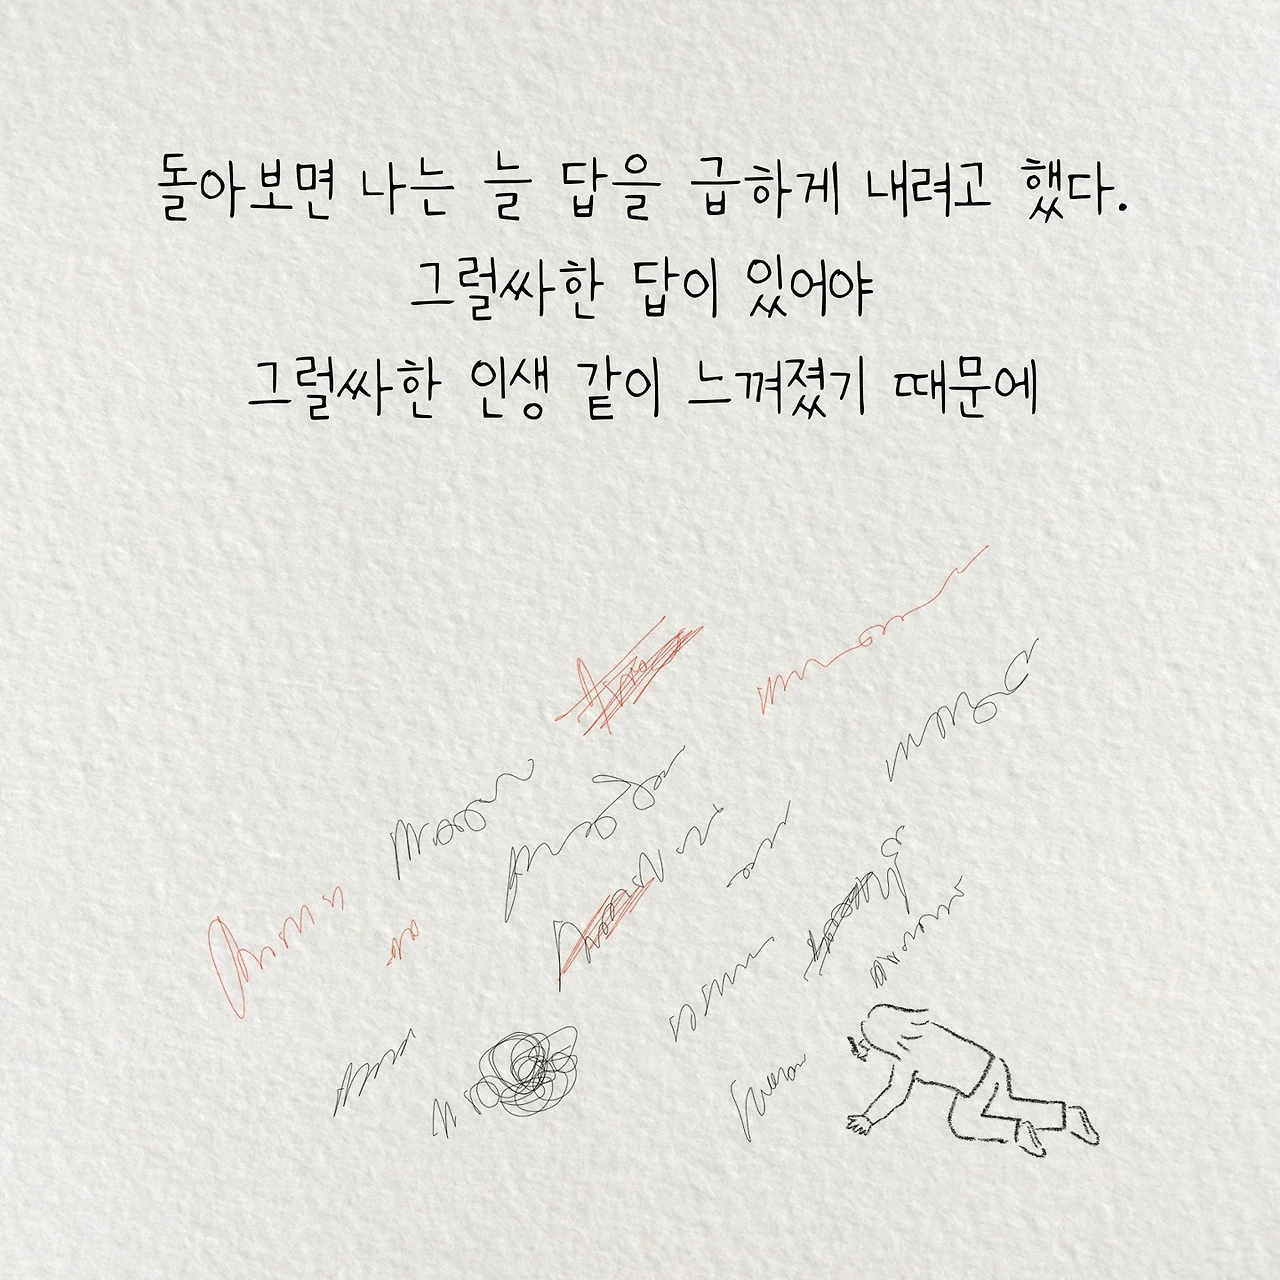 돌아보면 나는 늘 답을 급하게 내려고 했다.
그럴싸한 답이 있어야
그럴싸한 인생 같이 느껴졌기 때문에